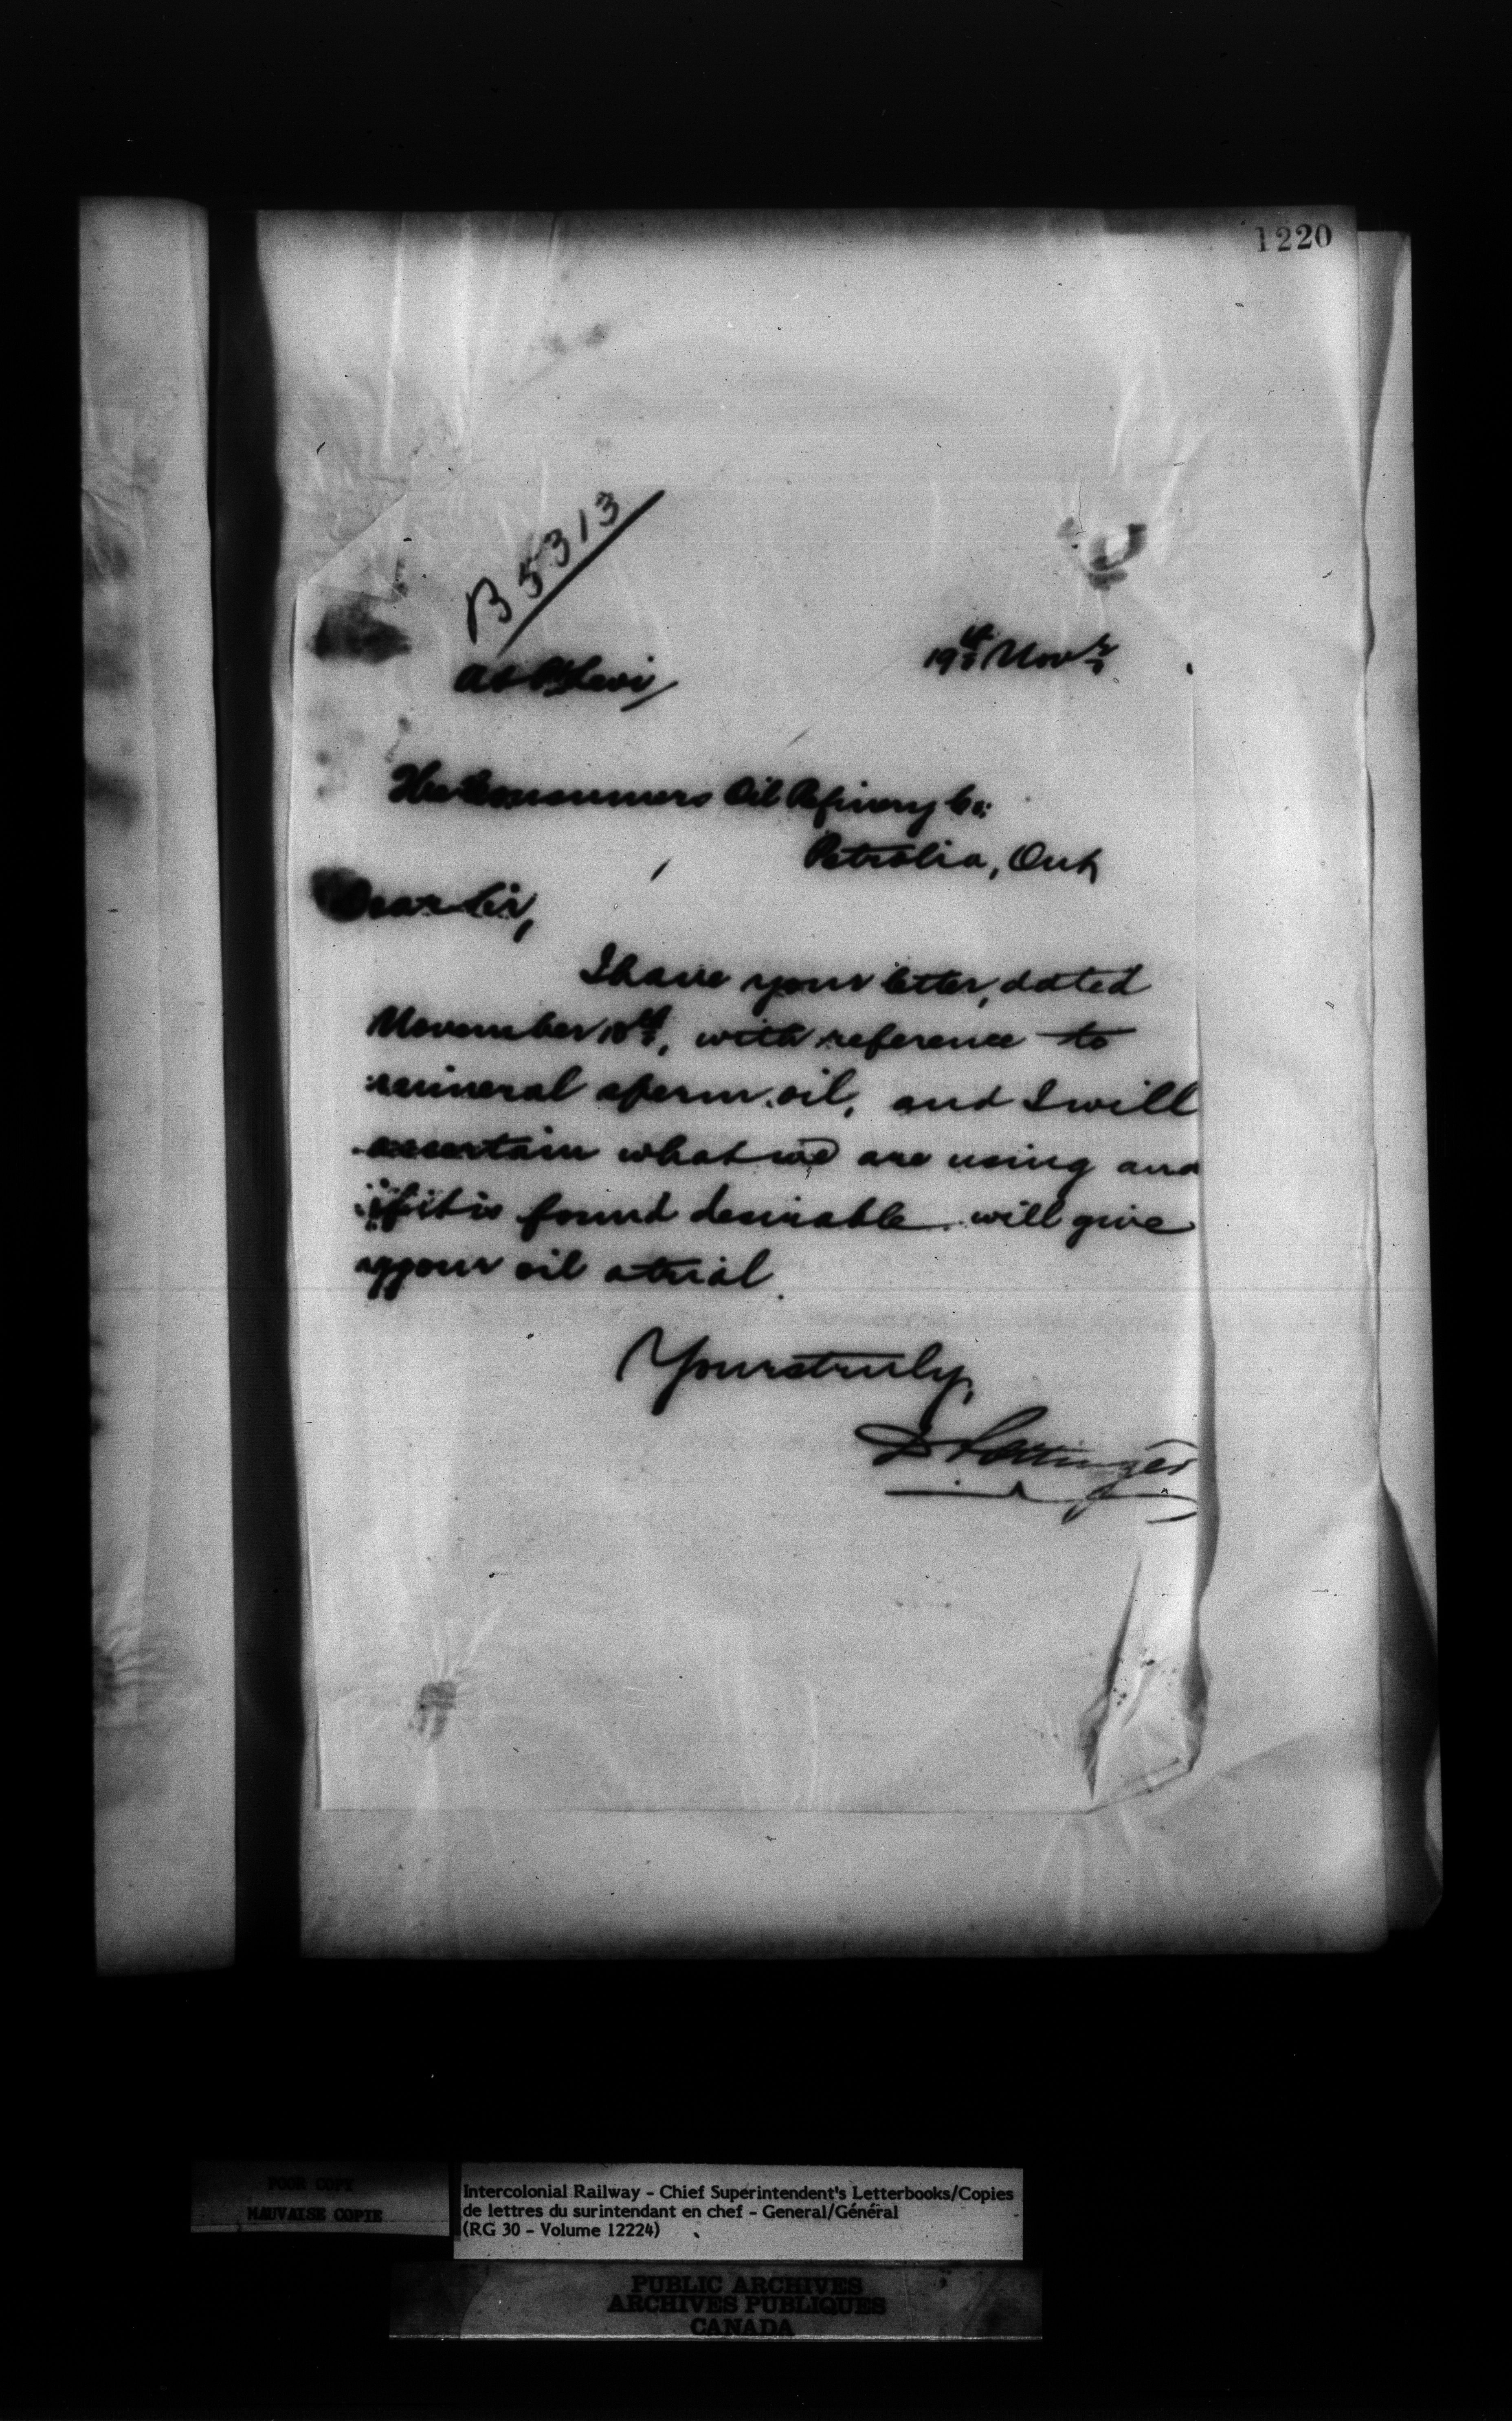 1220
B 5313
At Pt Levi
19th Novr
The Consumers Oil Refinery Co:
Petrolia, Ont
Dear Sir,
I have your letter, dated
November 10th, with reference to
mineral sperm oil, and I will
ascertain what we are using and
if it is found desirable will give
your oil a trial.
Yours truly,
D Pottinger
POOR COPY
MAUVAISE COPIE
Intercolonial Railway - Chief Superintendent's Letterbooks/Copies
de lettres du surintendant en chef - General/Général
(RG 30 - Volume 12224)
PUBLIC ARCHIVES
ARCHIVES PUBLIQUES
CANADA